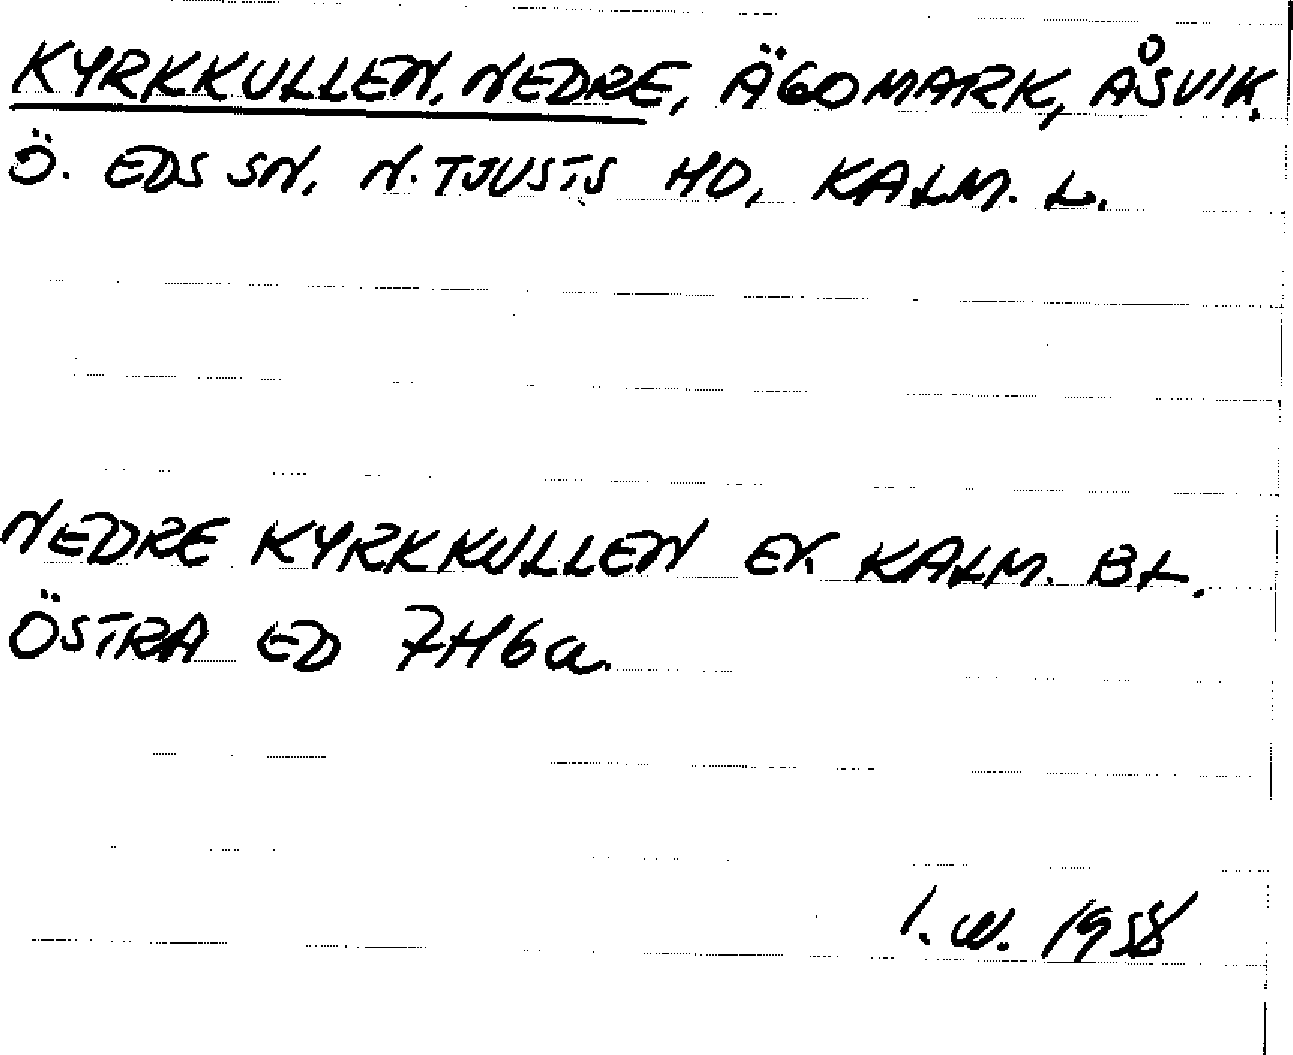 KYRKKULLEN, NEDRE, ÄGOMARK, ÅSVIK.
Ö. EDS SN, N. TJUSTS HD, KALM. L.
NEDRE KYRKKULLEN EK. KALM. BL.
ÖSTRA ED 7H6a.
I.W. 1958